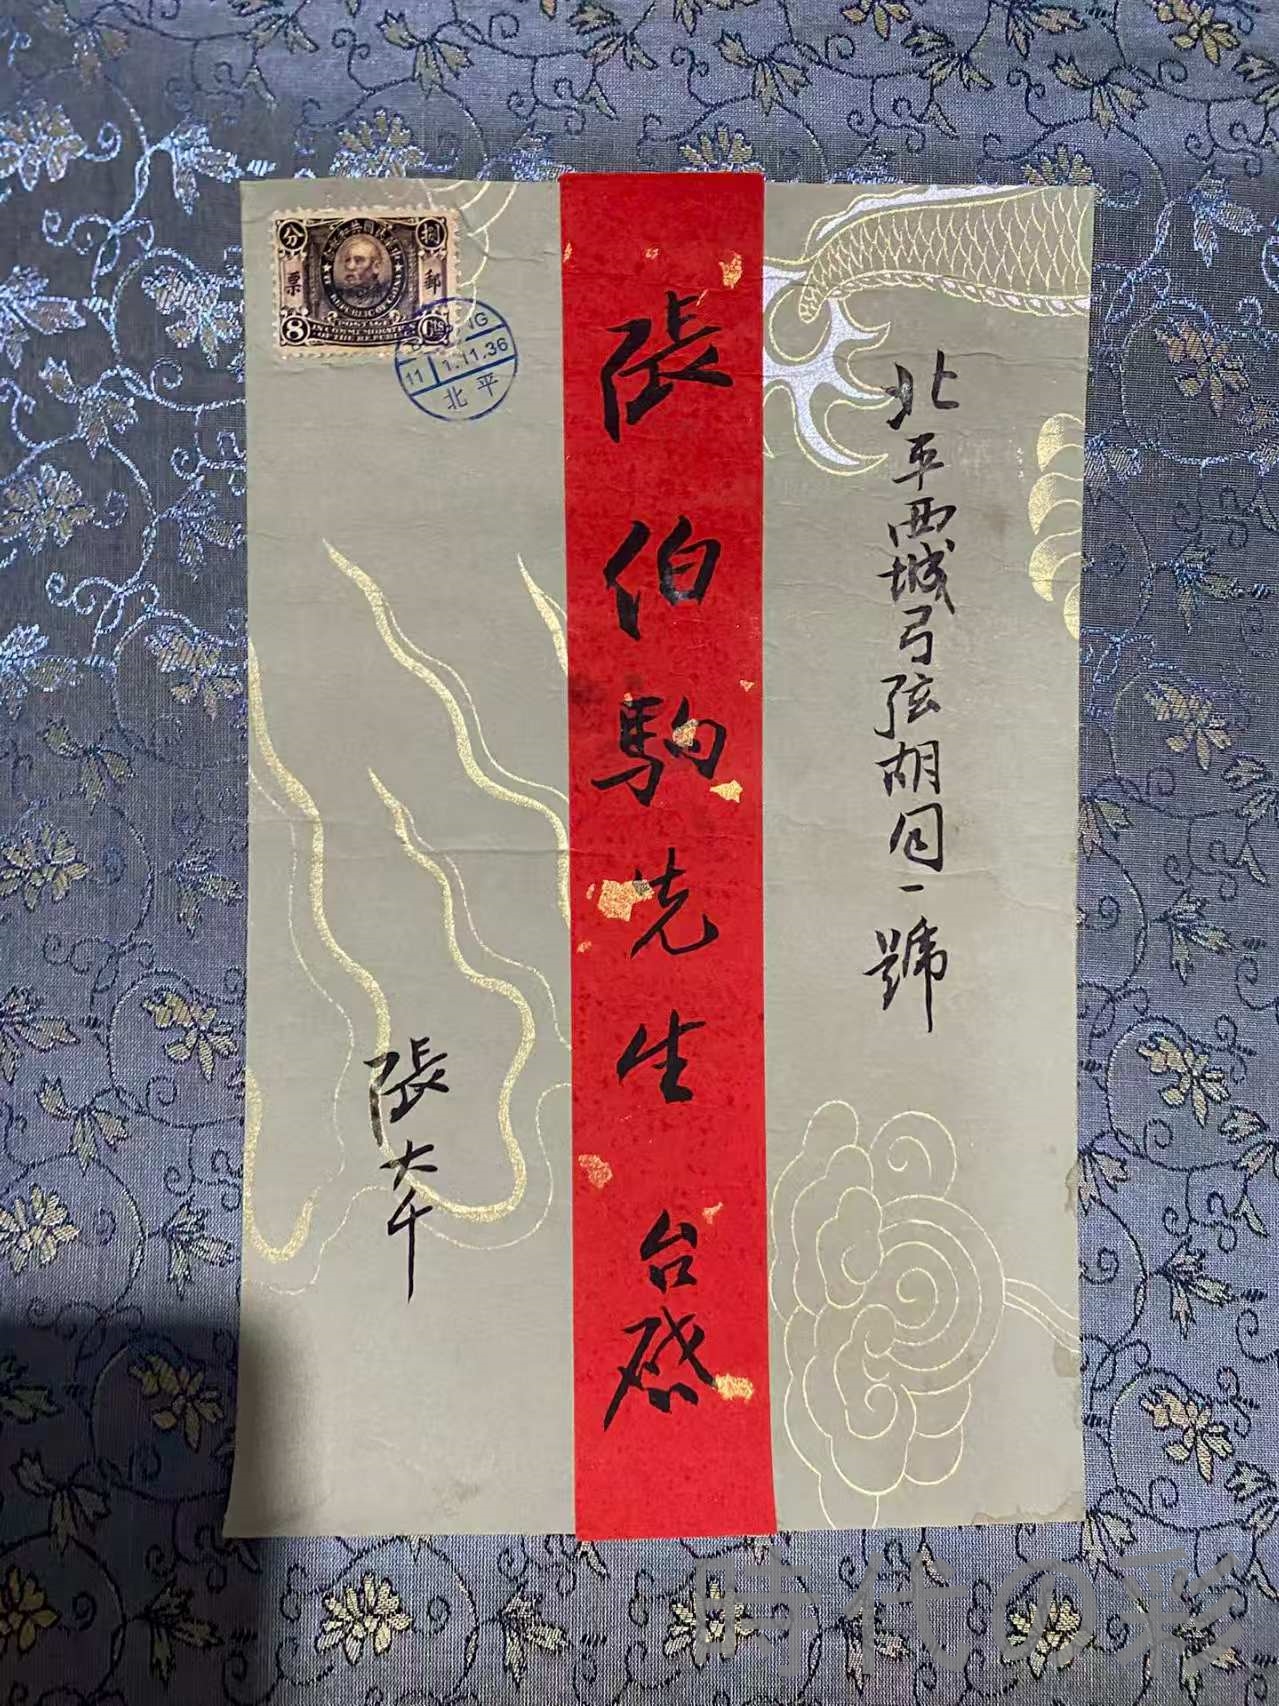 北平西城弓弦胡同一號
張伯駒先生 台啟
張大千
分 捌
票 郵
8 Cts
POSTAGE
IN COMMEMORATION
OF THE REPUBLIC
11 1.11.36
北平
時代の彩